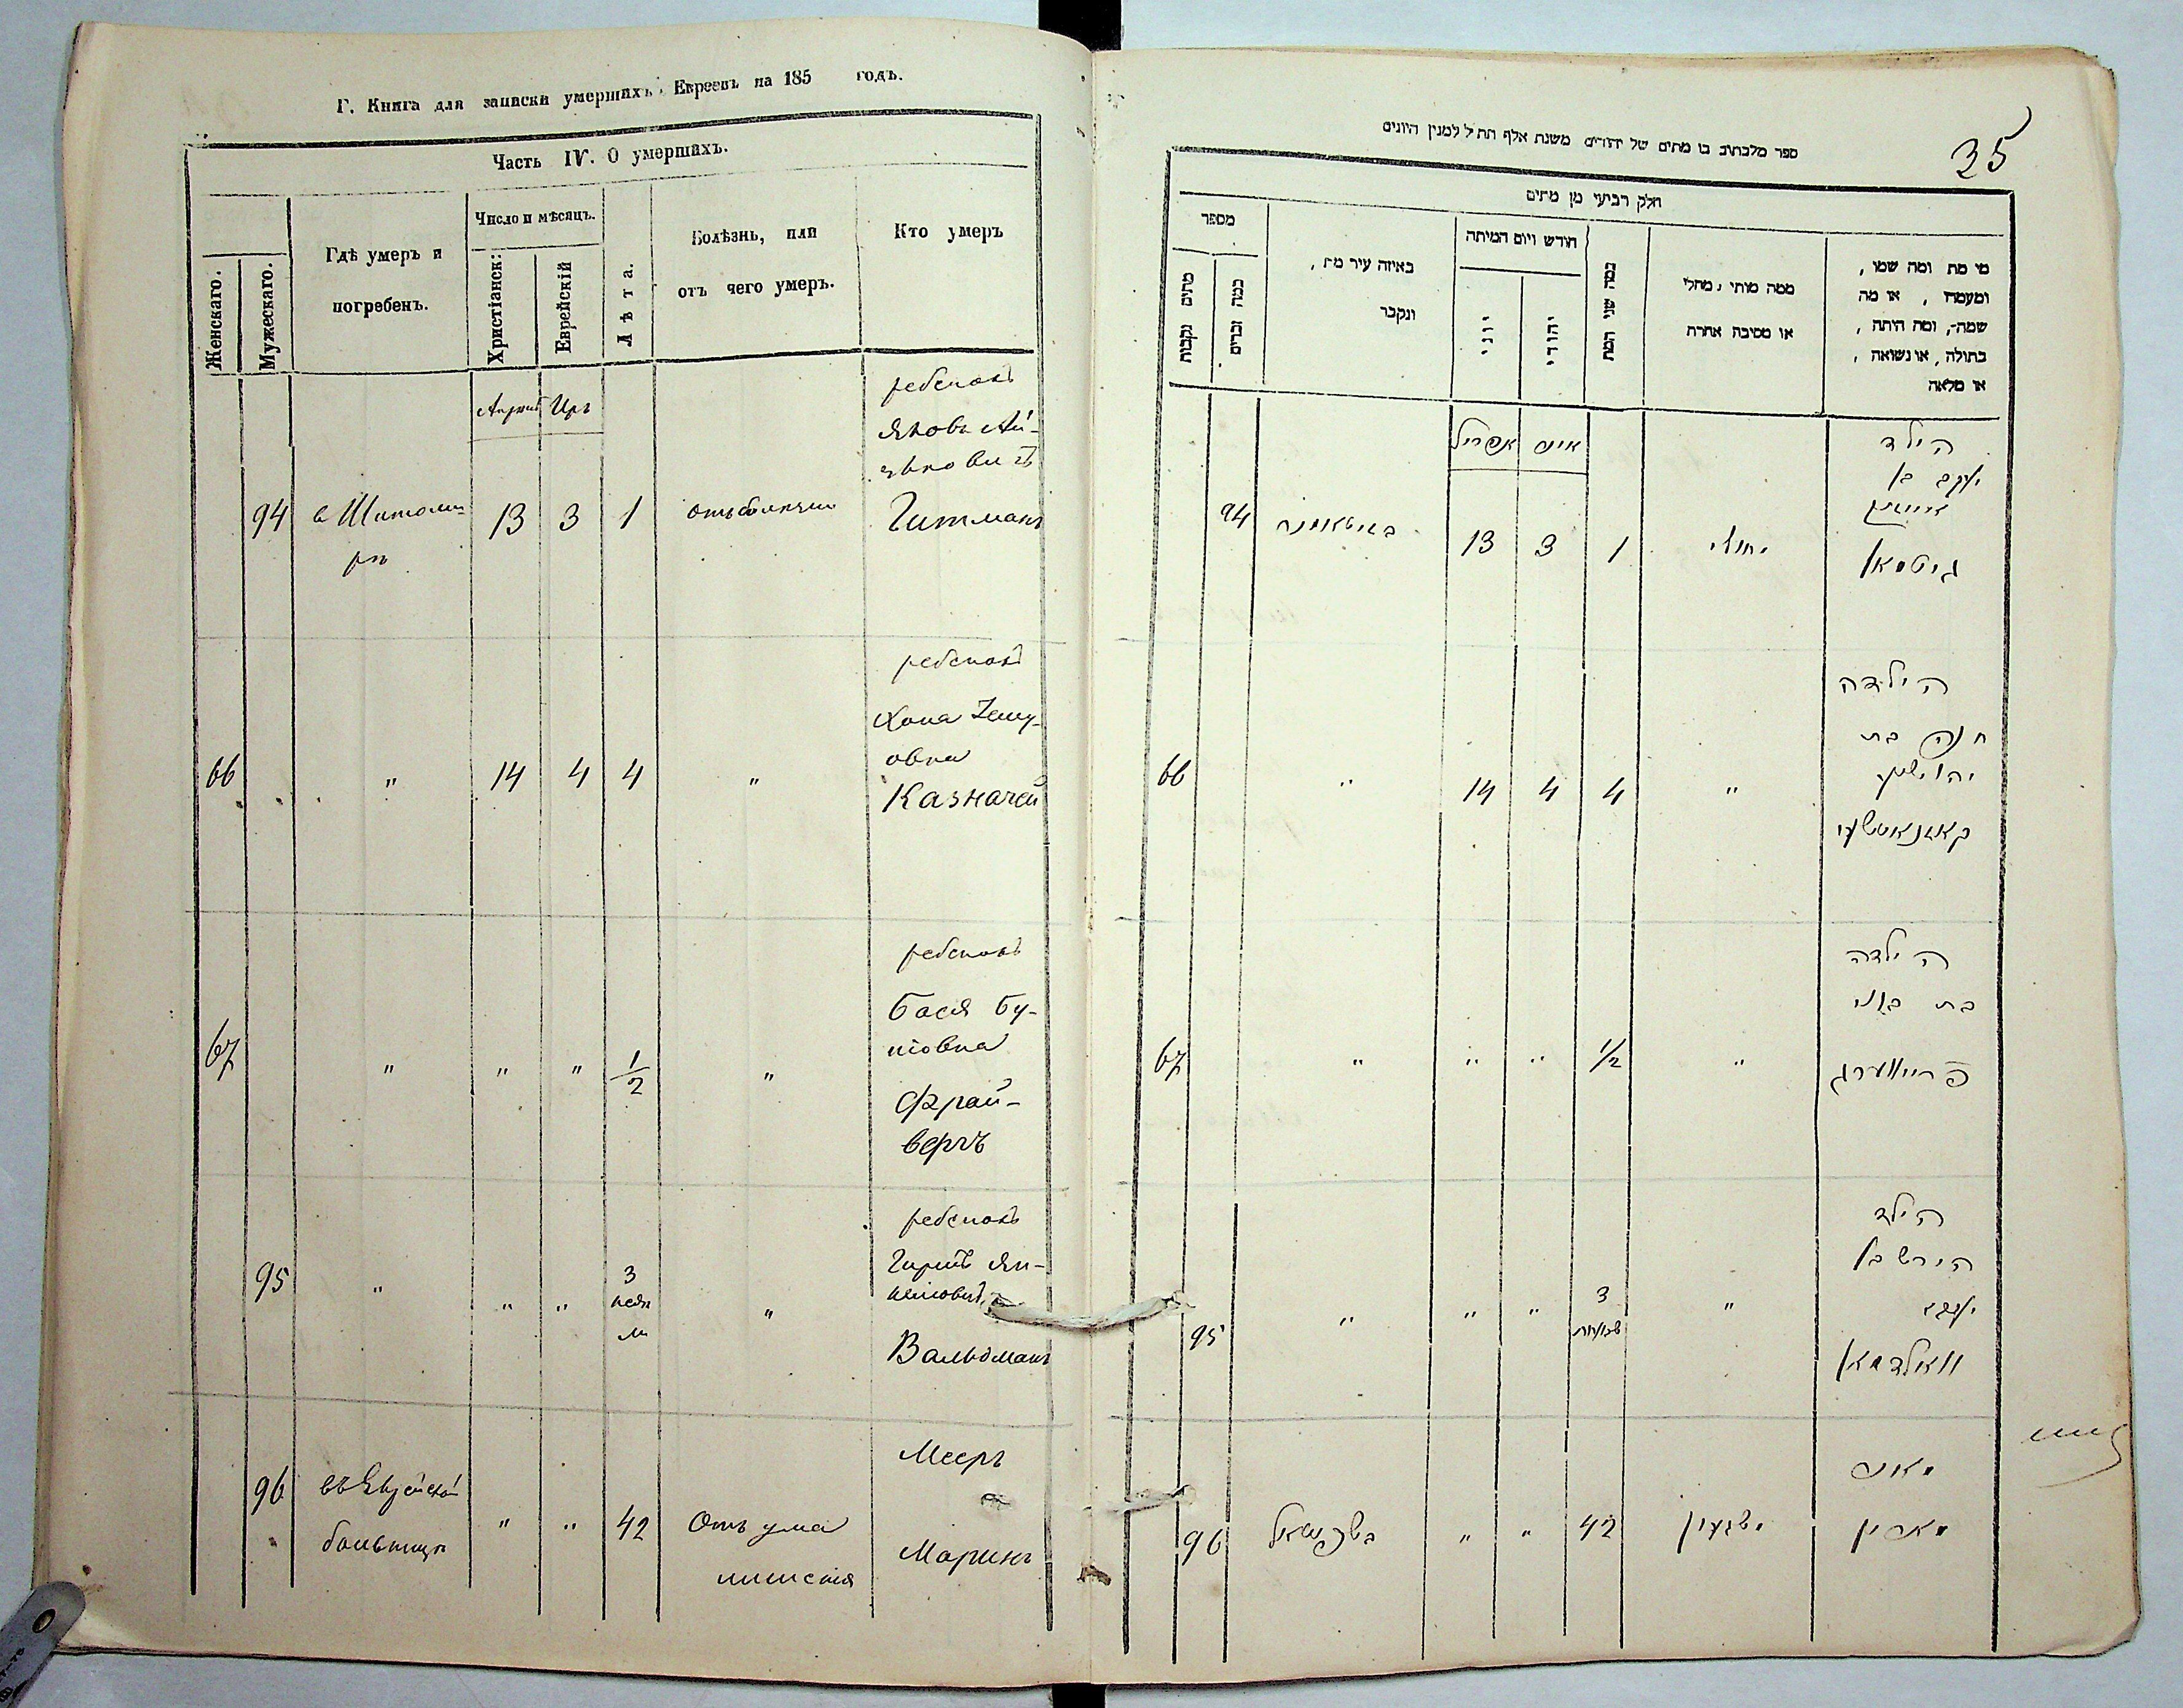 Г. Книга для записки умершихъ Евреевъ на 185 годъ.
Часть IV. О умершихъ.
Женскаго.
Мужескаго.
Гдѣ умеръ и
погребенъ.
Число и мѣсяцъ.
Христіанск:
Еврейскій
Лѣта.
Болѣзнь, или
отъ чего умеръ.
Кто умеръ
Апрель Иръ
ребенокъ
Яковъ Ай-
зыковичъ
94 в Житоми- 13 3 1 Гитманъ
рѣ
ребенокъ
Хона
овна
66 " 14 4 4 " Казначей
ребенокъ
Бася Бу-
нiовна
67 " " " 1/2 " Фрай-
вергъ
ребенокъ
Гиршъ Ян-
келiовичъ
95 " " " 3 недѣ "
Вальдманъ
Мееръ
96 въ Еврейской " " 42 Отъ ума
больницѣ
лишенiя
Маринъ
35
ספר מלכתוב בו מתים של יהודים משנת אלף תת״ל למנין היונים
חלק רביעי מן מתים
מספר
מתים נקבות
כמה זכרים
באיזה עיר מת,
ונקבר
חודש ויום המיתה
יוני
יהודי
כמה שני המת
ממה מותי, מחלי
או מסיבה אחרת
מי מת ומה שמו,
ומעמדו, או מה
שמה, ומה היתה,
בתולה, או נשואה,
או מלאה
אפריל אייר
הילד
יעקב בן
אייזיק
94 13 3 1 גיטמאן
הילדה
חנה בת
66 " 14 4 4 "
קאזנאטשעי
הילדה
בת
67 " " " 1/2 " פרייווערג
הילד
הירש בן
יעקב
95 " " " 3 שבועות "
וואלדמאן
מאיר
96 בשפיטאל " " 42 משגעון מארין